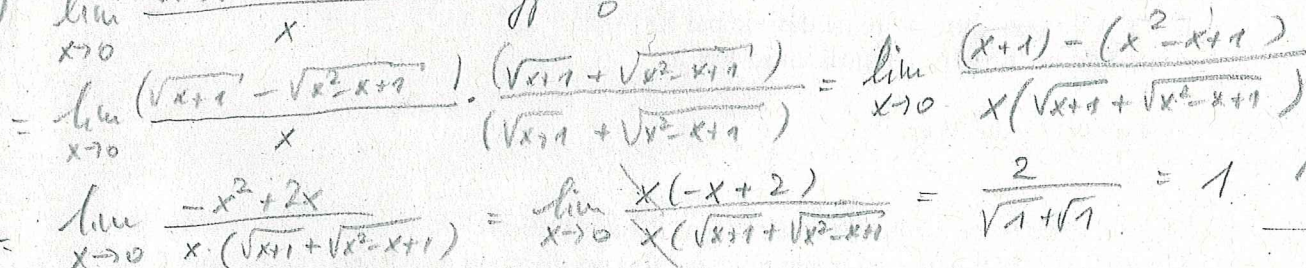 lim x→0 x 0
= lim x→0 (√(x+1) - √(x²-x+1)) / x · (√(x+1) + √(x²-x+1)) / (√(x+1) + √(x²-x+1)) = lim x→0 ((x+1) - (x²-x+1)) / (x(√(x+1) + √(x²-x+1)))
= lim x→0 (-x²+2x) / (x·(√(x+1) + √(x²-x+1))) = lim x→0 (x(-x+2)) / (x(√(x+1) + √(x²-x+1))) = 2 / (√1+√1) = 1